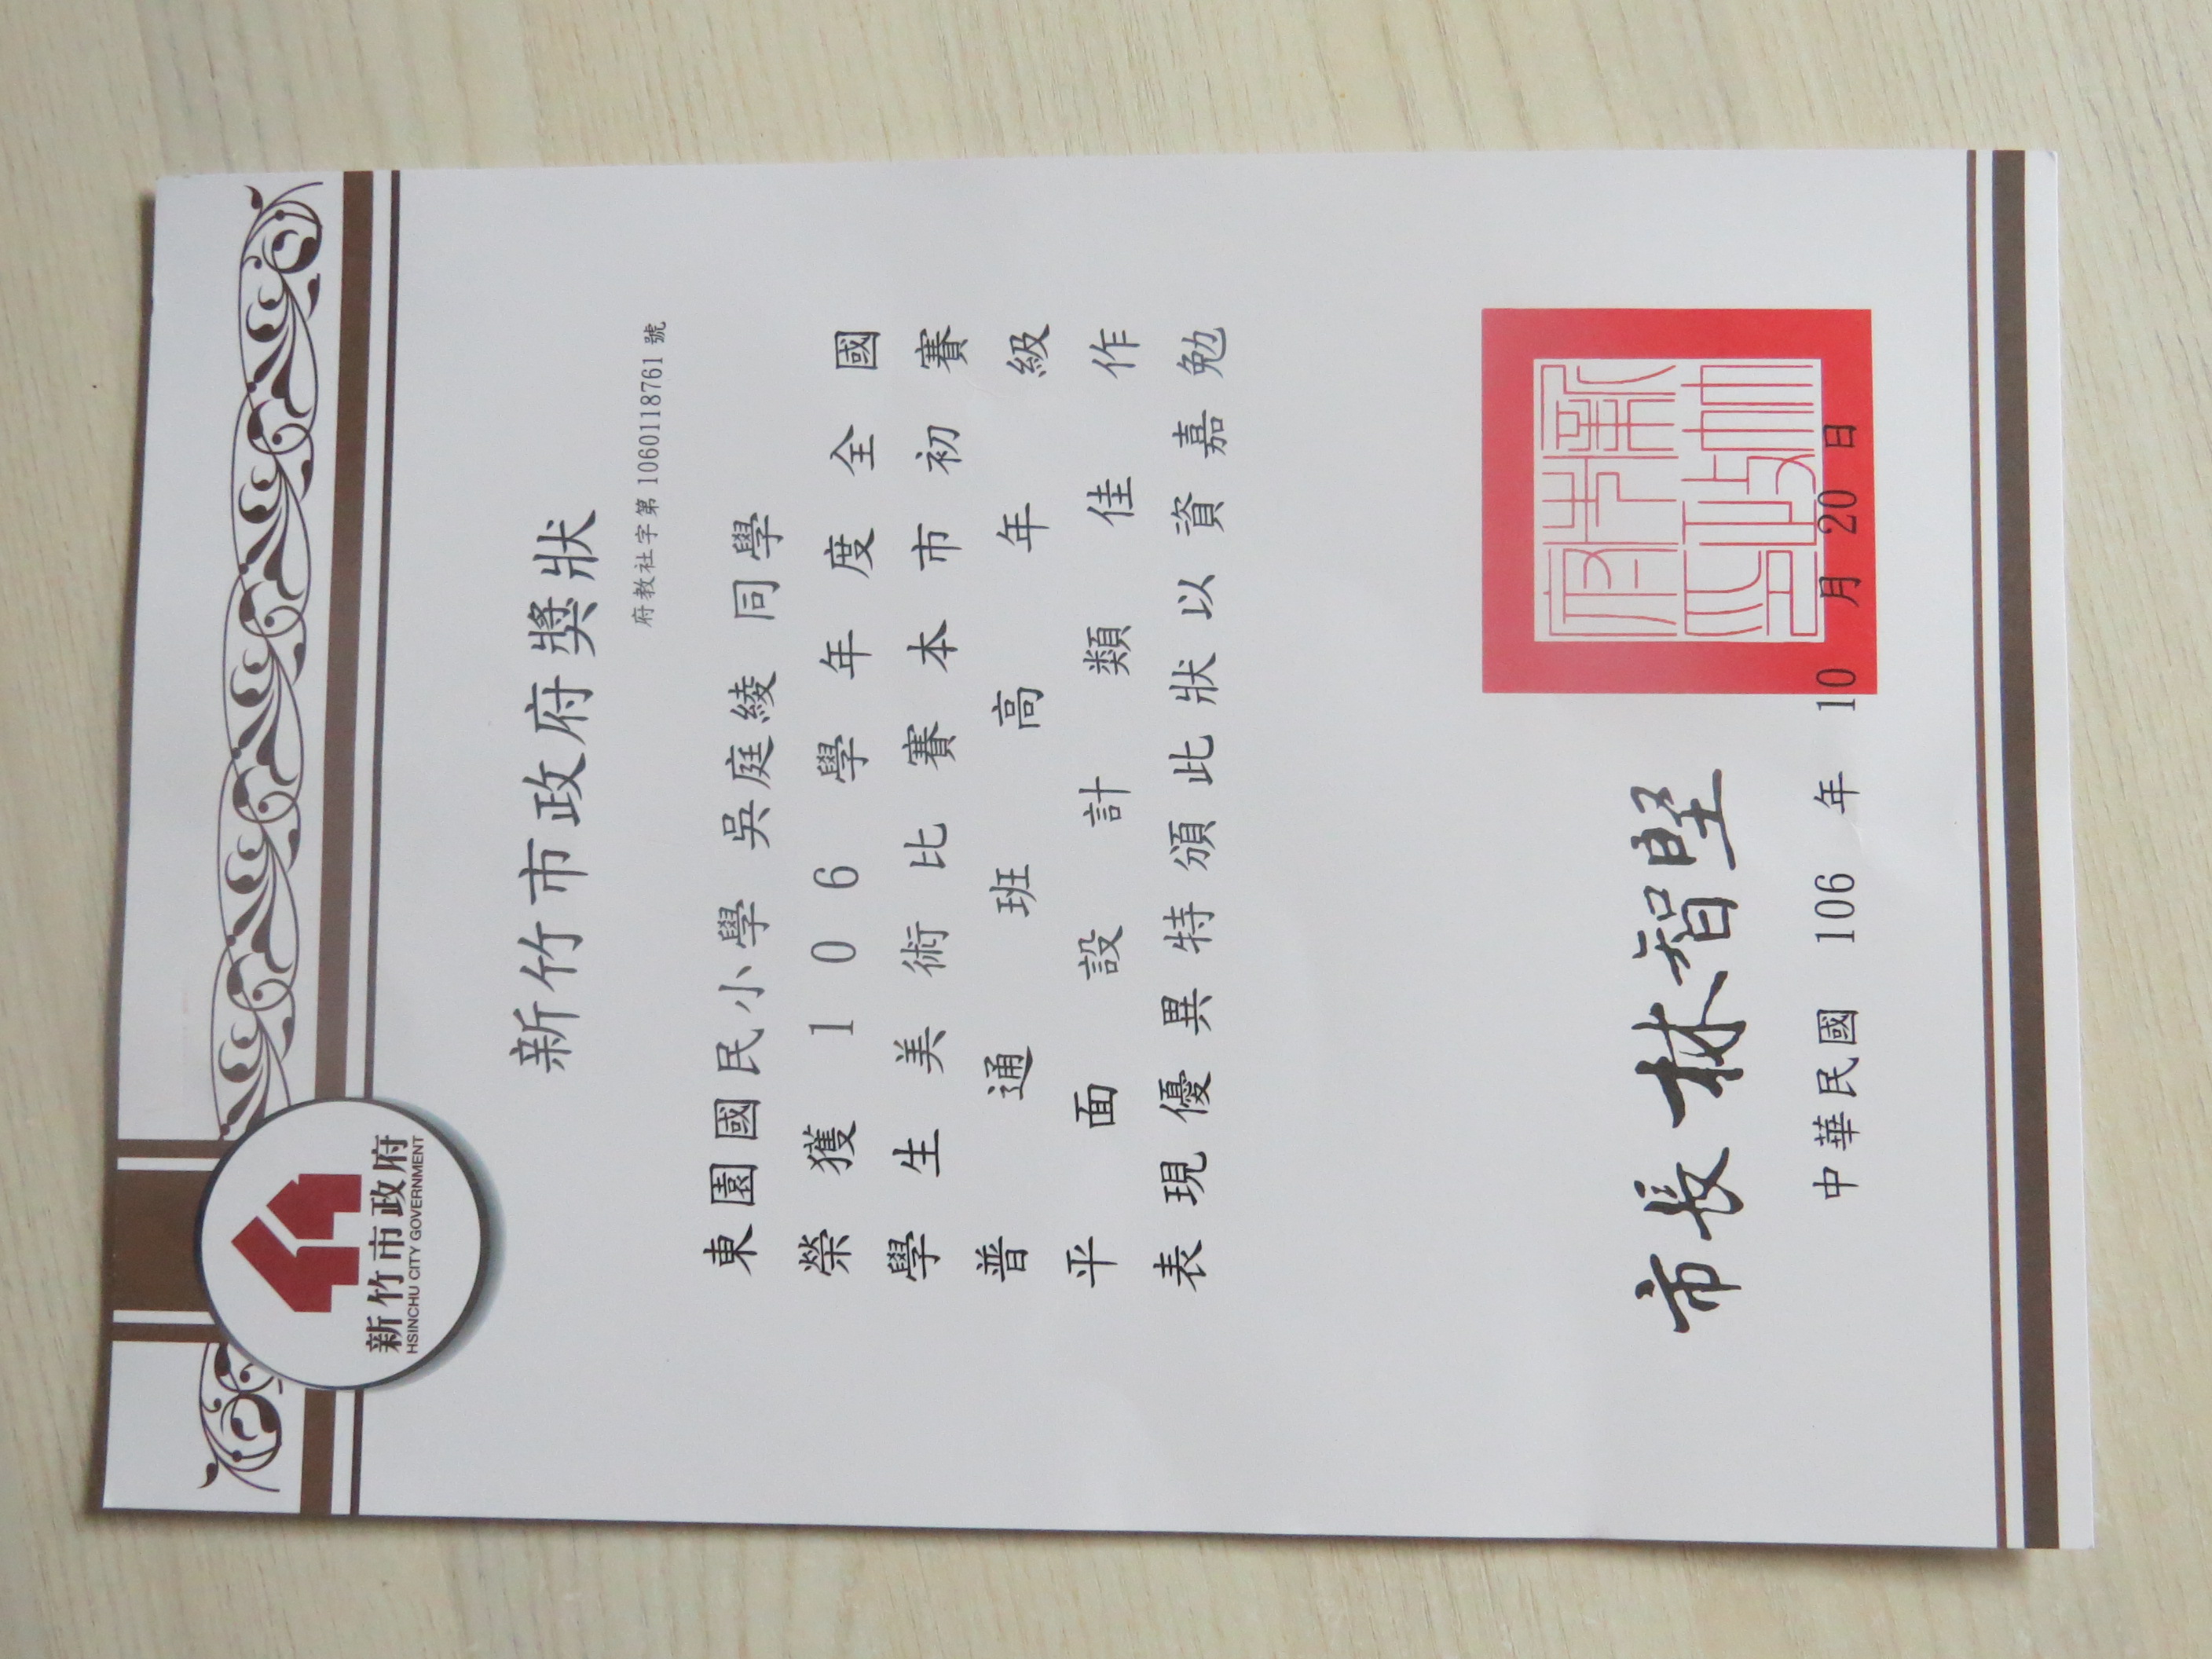 新竹市政府
HSINCHU CITY GOVERNMENT
新竹市政府獎狀
府教社字第 1060118761 號
東園國民小學 吳庭綾 同學
榮獲 106 學年度全國
學生美術比賽本市初賽
普通班高年級
平面設計類佳作
表現優異特頒此狀以資嘉勉
市長林智堅
新竹市政府印
中華民國 106 年 10 月 20 日